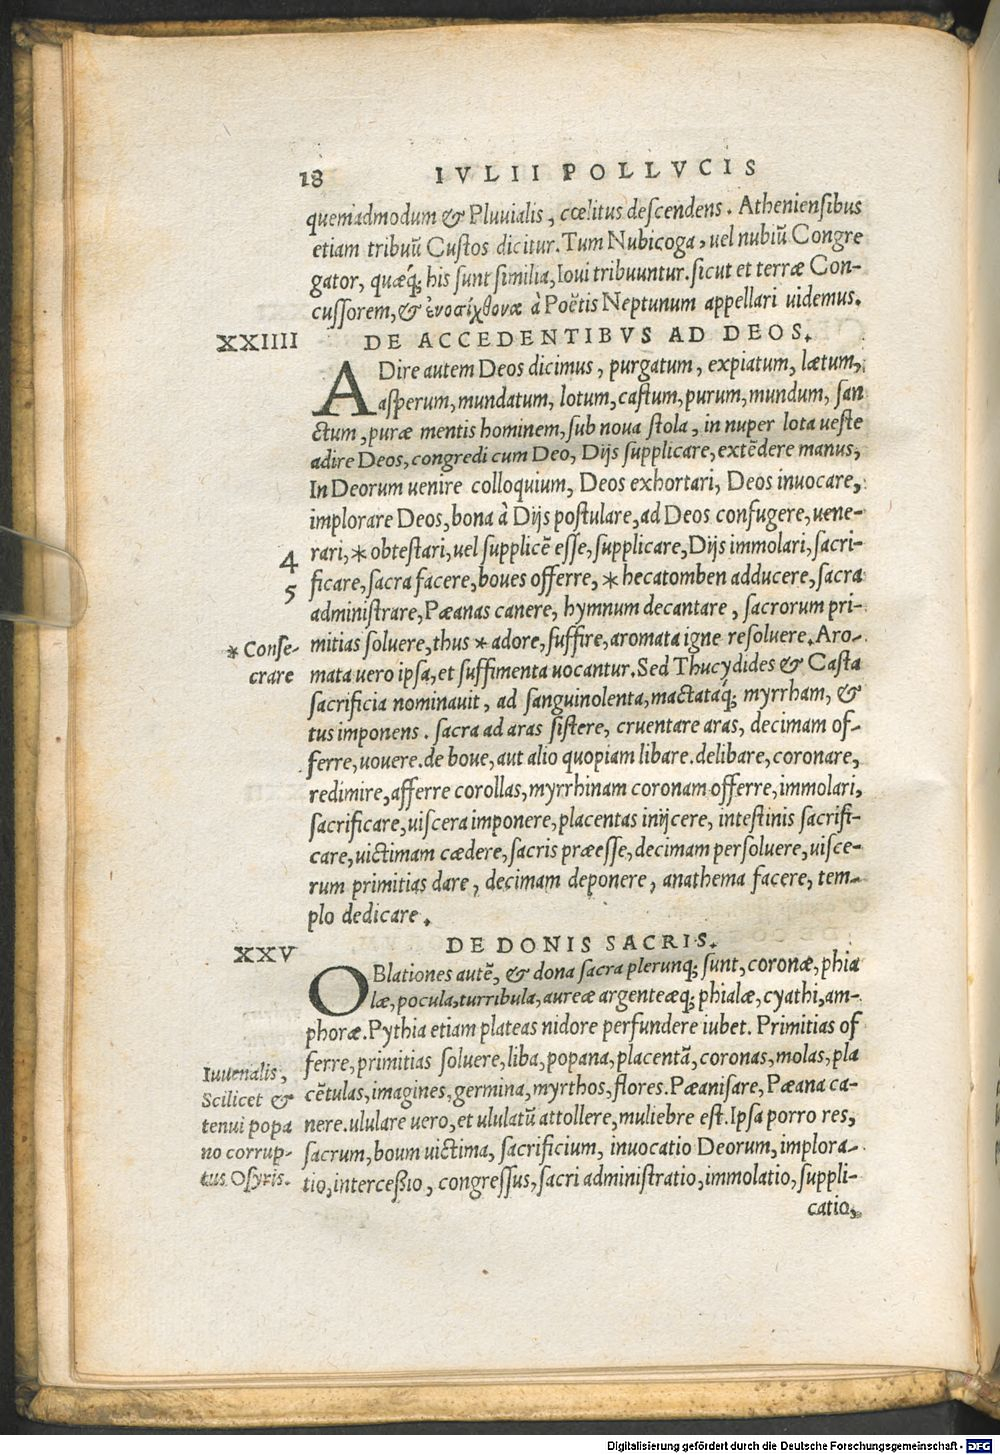 18 IVLII POLLVCIS
quemadmodum & Pluuialis, cœlitus descendens. Atheniensibus
etiam tribuũ Custos dicitur. Tum Nubicoga, uel nubiũ Congre
gator, quæq́; his sunt similia, Ioui tribuuntur. sicut et terræ Con-
cussorem, & ἐνοσίχθονα à Poëtis Neptunum appellari uidemus.
XXIIII DE ACCEDENTIBVS AD DEOS.
ADire autem Deos dicimus, purgatum, expiatum, lætum,
asperum, mundatum, lotum, castum, purum, mundum, san
ctum, puræ mentis hominem, sub noua stola, in nuper lota ueste
adire Deos, congredi cum Deo, Dijs supplicare, extẽdere manus,
In Deorum uenire colloquium, Deos exhortari, Deos inuocare,
implorare Deos, bona à Dijs postulare, ad Deos confugere, uene-
4 rari, * obtestari, uel supplicẽ esse, supplicare, Dijs immolari, sacri-
5 ficare, sacra facere, boues offerre, * hecatomben adducere, sacra
administrare, Pæanas canere, hymnum decantare, sacrorum pri-
* Conse- mitias soluere, thus * adore, suffire, aromata igne resoluere. Aro-
crare mata uero ipsa, et suffimenta uocantur. Sed Thucydides & Casta
sacrificia nominauit, ad sanguinolenta, mactatáq; myrrham, &
tus imponens. sacra ad aras sistere, cruentare aras, decimam of-
ferre, uouere. de boue, aut alio quopiam libare. delibare, coronare,
redimire, afferre corollas, myrrhinam coronam offerre, immolari,
sacrificare, uiscera imponere, placentas inijcere, intestinis sacrifi-
care, uictimam cædere, sacris præesse, decimam persoluere, uisce-
rum primitias dare, decimam deponere, anathema facere, tem-
plo dedicare.
XXV DE DONIS SACRIS.
OBlationes autẽ, & dona sacra plerunq; sunt, coronæ, phia
læ, pocula, turribula, aureæ argenteæq; phialæ, cyathi, am-
phoræ. Pythia etiam plateas nidore perfundere iubet. Primitias of
ferre, primitias soluere, liba, popana, placentã, coronas, molas, pla
cẽtulas, imagines, germina, myrthos, flores. Pæanisare, Pæana ca-
nere. ululare uero, et ululatũ attollere, muliebre est. Ipsa porro res,
sacrum, boum uictima, sacrificium, inuocatio Deorum, implora-
tio, intercessio, congressus, sacri administratio, immolatio, suppli-
catio,
Iuuenalis,
Scilicet &
tenui popa
no corrup-
tus Osyris.
Digitalisierung gefördert durch die Deutsche Forschungsgemeinschaft - DFG